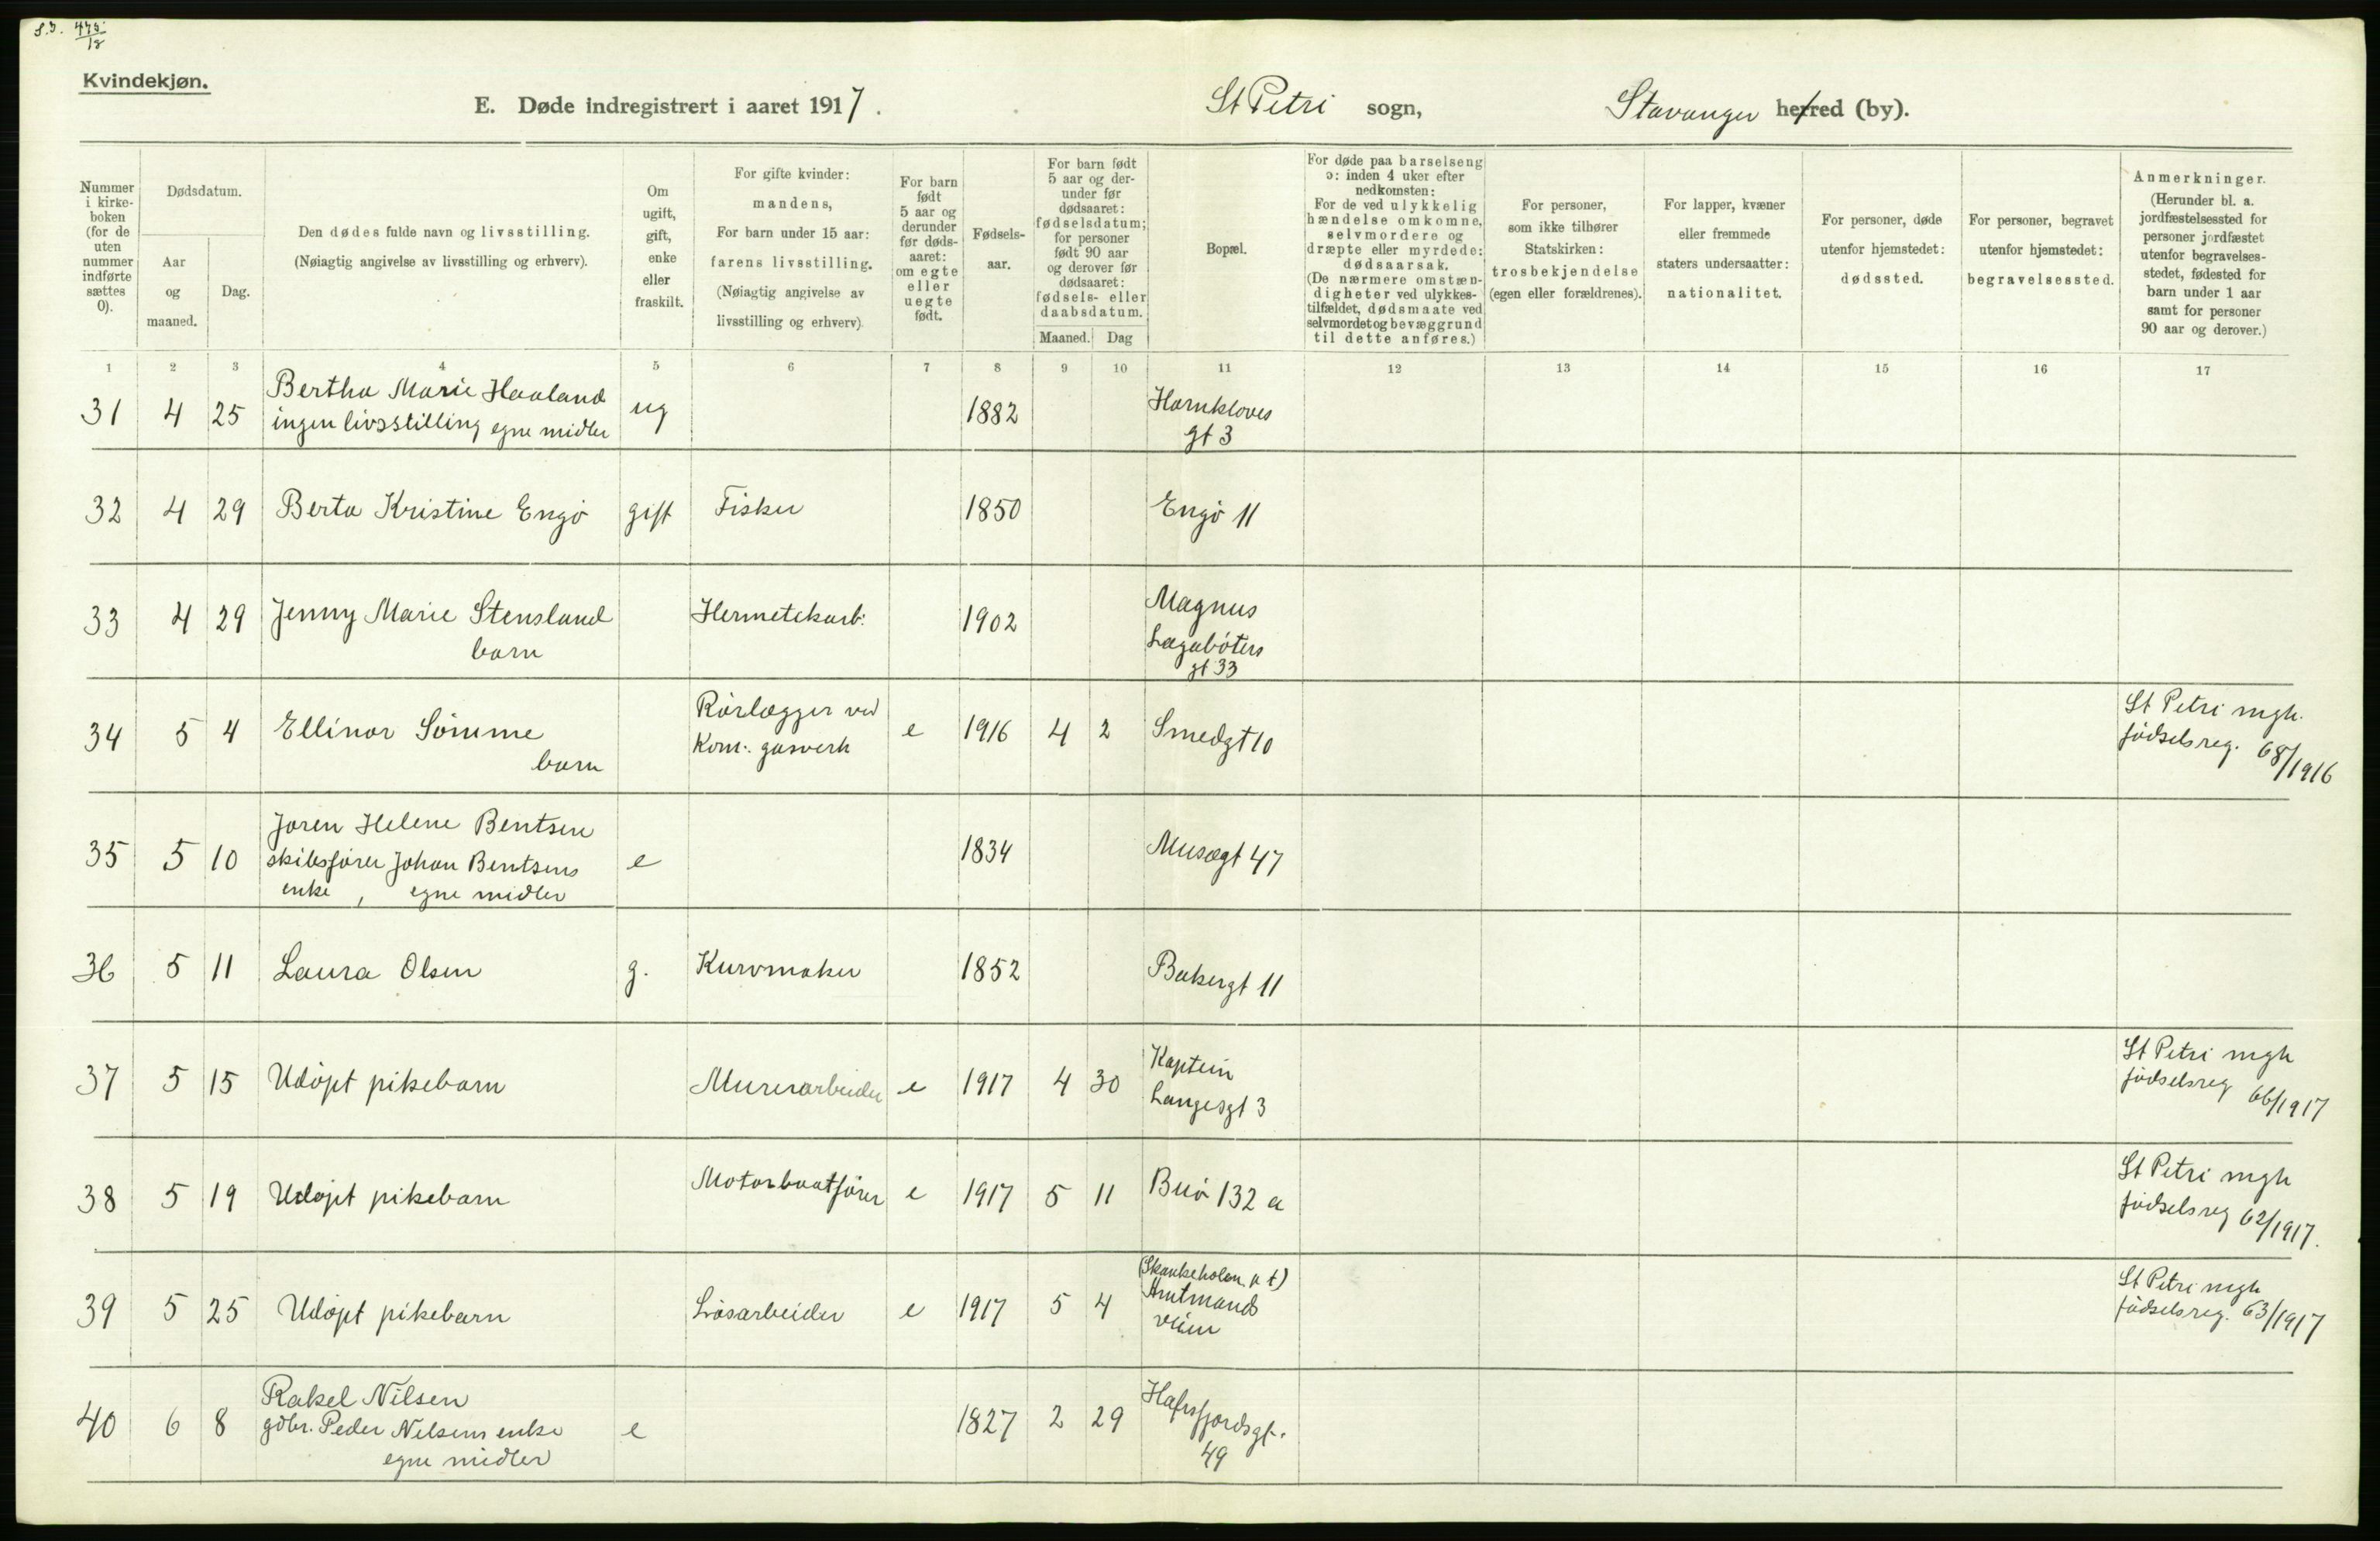 S.D. 475
18
Kvindekjøn.
E. Døde indregistrert i aaret 1917. St Petri sogn, Stavanger herred (by).
Nummer i kirkeboken (for de uten nummer indførte sættes 0).
Dødsdatum.
Aar og maaned.
Dag.
Den dødes fulde navn og livsstilling.
(Nøiagtig angivelse av livsstilling og erhverv).
Om ugift, gift, enke eller fraskilt.
For gifte kvinder: mandens,
For barn under 15 aar: farens livsstilling.
(Nøiagtig angivelse av livsstilling og erhverv)
For barn født 5 aar og derunder før dødsaaret: om egte eller uegte født.
Fødselsaar.
For barn født 5 aar og derunder før dødsaaret: fødselsdatum; for personer født 90 aar og derover før dødsaaret: fødsels- eller daabsdatum.
Maaned. Dag
Bopæl.
For døde paa barselseng ɔ: inden 4 uker efter nedkomsten:
For de ved ulykkelig hændelse omkomne, selvmordere og dræpte eller myrdede: dødsaarsak.
(De nærmere omstændigheter ved ulykkestilfældet, dødsmaate ved selvmordet og bevæggrund til dette anføres.)
For personer, som ikke tilhører Statskirken: trosbekjendelse (egen eller forældrenes).
For lapper, kvæner eller fremmede staters undersaatter: nationalitet.
For personer, døde utenfor hjemstedet: dødssted.
For personer, begravet utenfor hjemstedet: begravelsessted.
Anmerkninger.
(Herunder bl. a. jordfæstelsessted for personer jordfæstet utenfor begravelsesstedet, fødested for barn under 1 aar samt for personer 90 aar og derover.)
1 2 3 4 5 6 7 8 9 10 11 12 13 14 15 16 17
31 4 25 Bertha Marie Haaland ug 1882 Harnkloves
ingen livsstilling egne midler gt 3
32 4 29 Berta Kristine Engø gift Fisker 1850 Engø 11
33 4 29 Jenny Marie Stensland Hermetekarb: 1902 Magnus
barn Lagabøters
gt 33
34 5 4 Ellinor Sømme Rørlægger ved e 1916 4 2 Smedgt 10 St Petri mgh.
barn Kom: gasverk fødselsreg. 68/1916
35 5 10 Joren Helene Bentsen e 1834 Musægt 47
skibsfører Johan Bentsens
enke, egne midler
36 5 11 Laura Olsen g. Kurvmaker 1852 Bakergt 11
37 5 15 Udøpt pikebarn Murerarbeider e 1917 4 30 Kaptein St Petri mgh
Langesgt 3 fødselsreg 66/1917
38 5 19 Udøpt pikebarn Motorbaatfører e 1917 5 11 Buø 132 a St Petri mgh
fødselsreg 62/1917.
39 5 25 Udøpt pikebarn Løsarbeider e 1917 5 4 (Skankeholen n t) St Petri mgh
Amtmands fødselsreg. 63/1917
veien
40 6 8 Rakel Nilsen e 1827 2 29 Hafrsfjordsgt.
gdbr. Peder Nilsens enke 49
egne midler